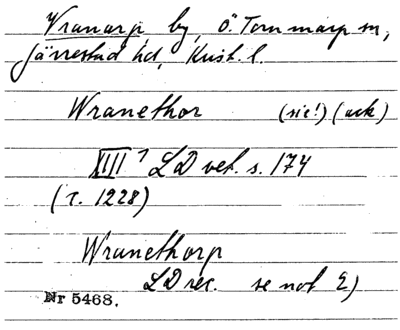 Vranarp by, Ö. Tommarp sn,
Järrestad hd, Krist. l.
Wranethor (sic!) (ack)
XIII 1 LD vet. s. 174
(r. 1228)
Wranethorp
LD rec. se not 2)
Nr 5468.